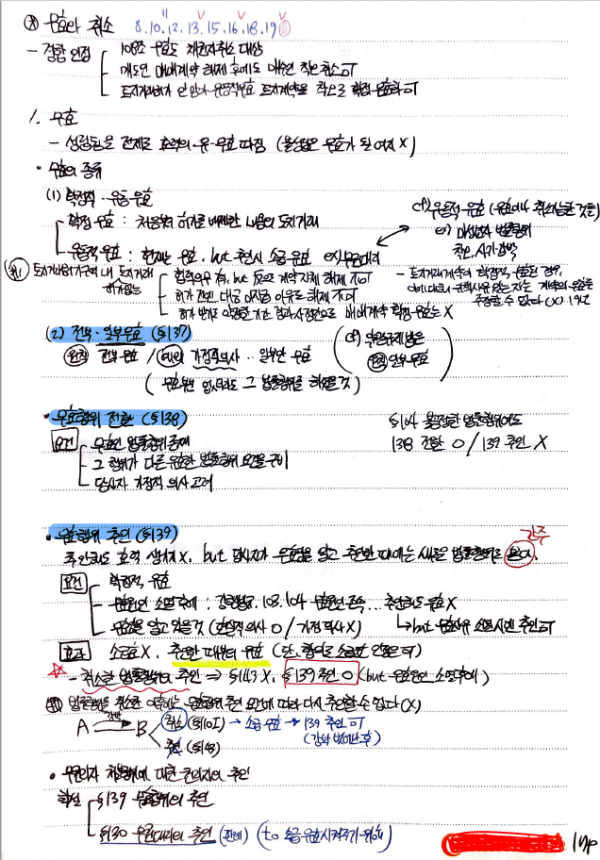 무효와 취소 8. 10. 12. 13. 15. 16. 18. 19
- 경합 인정
108조 무효도 채권자취소 대상
매도인 매매계약 해제 후에도 매수인 착오취소 可
1. 무효
- 성립됨을 전제로 효력의 유·무효 따짐 (불성립은 무효가 될 여지 X)
• 무효의 종류
(1) 확정적·유동 무효
확정 무효 : 처음부터 허가를 배제한 내용의 토지거래
유동적 무효 : 현재는 무효, but 추인시 소급 유효 ex) 무권대리
cf) 유동적 유효 (유효이나 취소가능한 것들)
ex) 미성년자 법률행위
착오, 사기 강박
토지거래허가구역 내 토지거래
허가 없는
협력의무 有, but 계약 자체 해제 不可
허가 전엔 대금 미지급 이유로 해제 不可
매매계약 확정 무효는 X
- 토지거래계약이 확정적 무효된 경우,
귀책사유 있는 자는 계약의 무효를
주장할 수 없다 (X)
(2) 전부·일부무효 (§137)
원칙 전부 무효 / 예외 가정적의사 .. 일부만 무효
(무효부분 없더라도 그 법률행위를 하였을 것)
일부무효
• 무효행위 전환 (§138)
요건
무효인 법률행위 존재
그 행위가 다른 유효한 법률행위 요건을 구비
당사자 가정적 의사 고려
§104 불공정한 법률행위에도
138 전환 O / 139 추인 X
• 무효행위 추인 (§139)
간주
추인해도 효력 생기지 X, but 당사자가 무효임을 알고 추인한 때에는 새로운 법률행위로 본다.
요건
확정적 무효
무효원인 소멸 후에 : 강행법규, 103. 104 무효원인 존속... 추인해도 무효 X
무효임을 알고 있을 것 (현실적 의사 O / 가정적 의사 X)
but 무효사유 소멸시엔 추인 可
효과 소급효 X. 추인한 때부터 유효 (단, 합의로 소급효 인정은 可)
☆ - 취소한 법률행위의 추인 ⇒ §143 X, §139 추인 O (but 무효원인 소멸후에)
법률행위를 취소한 이후에는 무효행위 추인 요건에 따라 다시 추인할 수 없다 (X)
A 강박 → B
취소 (§110I) → 소급 무효 → 139 추인 可
(강박 벗어난 후)
추인 (§143)
• 무권리자 처분행위에 대한 권리자의 추인
학설
§139 무효행위의 추인
§130 무권대리의 추인 (판례) (to 소급 유효시켜주기 위해)